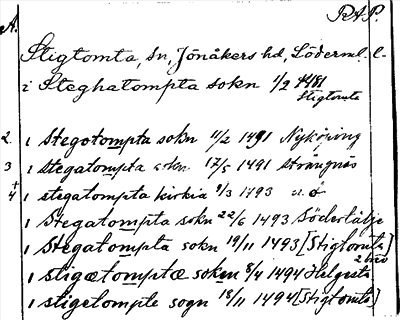 A. R.A.P.
Stigtomta, sn, Jönåkers hd, Söderml. l-
i Steghatompta sokn 1/2 1481
Stigtomta
2 i Stegotompta sokn 11/2 1491 Nyköping
3 i Stegatompta sokn 17/5 1491 Strängnäs
+
4 i stegatompta kirkia 9/3 1493 u. o
i Stegatompta sokn 22/6 1493 Södertälje
i Stegatompta sokn 19/11 1493 [Stigtomta]
i stigætomptæ sokn 8/4 1494 Helgesta
i stigetomple sogn 18/11 1494 [Stigtomta]